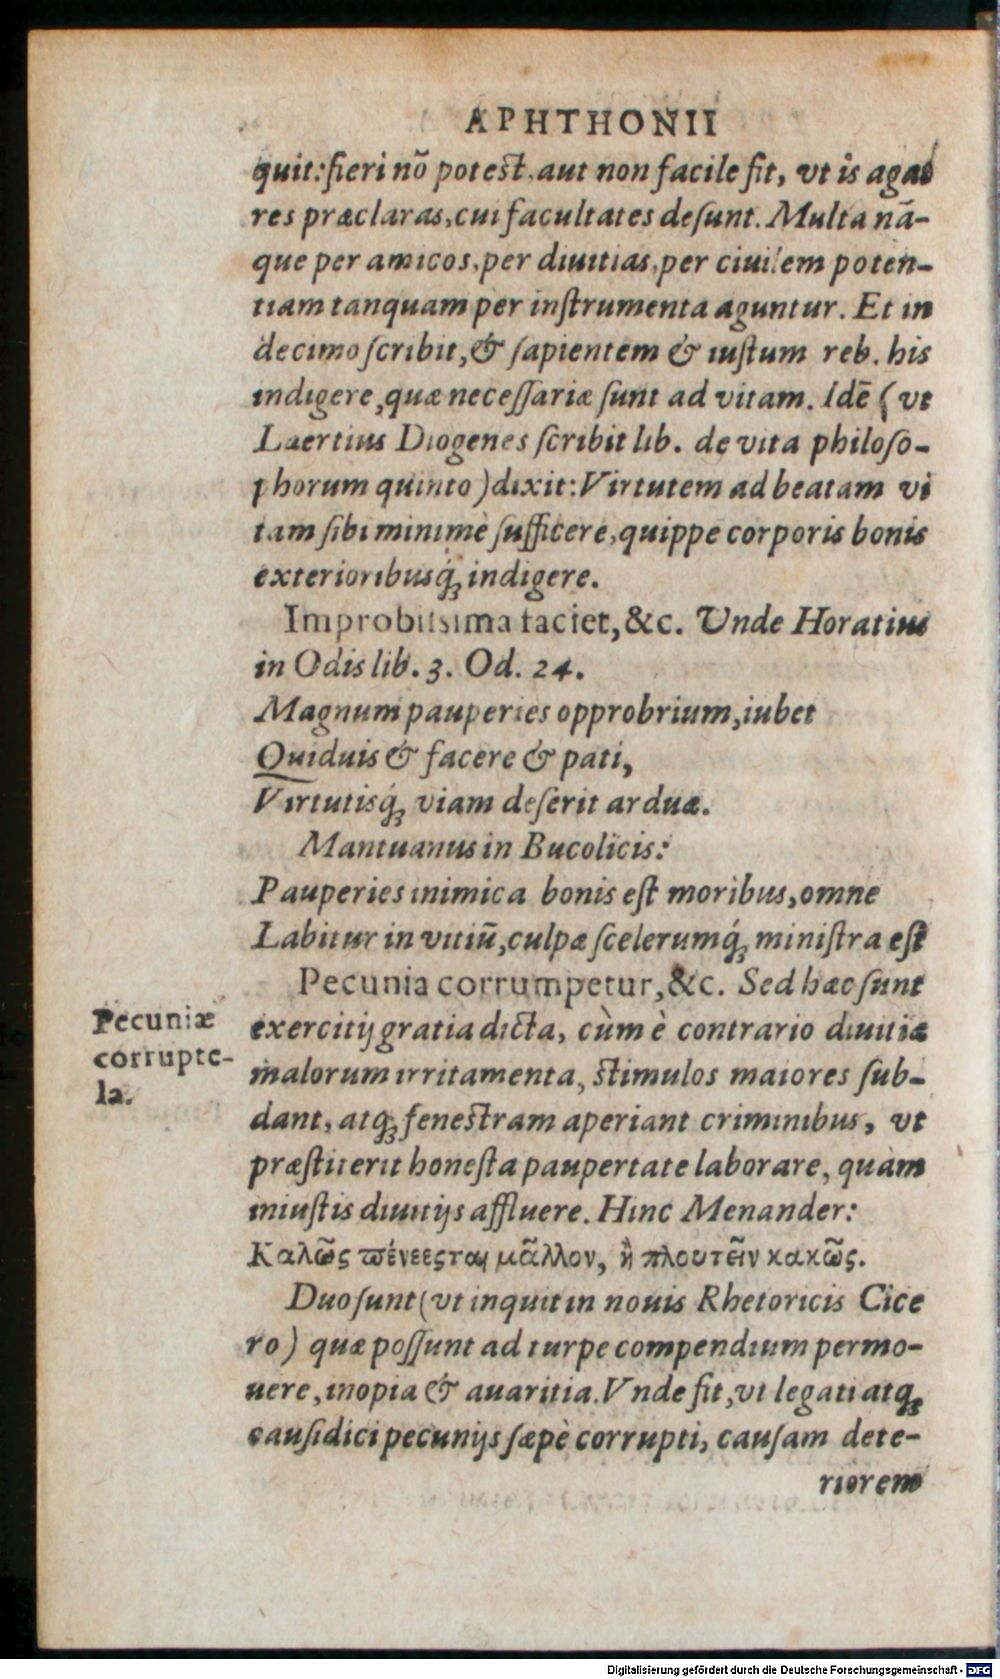 APHTHONII
quit: fieri nõ potest, aut non facile fit, vt is agat
res præclaras, cui facultates desunt. Multa nã-
que per amicos, per diuitias, per ciuilem poten-
tiam tanquam per instrumenta aguntur. Et in
decimo scribit, & sapientem & iustum reb. his
indigere, quæ necessariæ sunt ad vitam. Idẽ (vt
Laertius Diogenes scribit lib. de vita philoso-
phorum quinto) dixit: Virtutem ad beatam vi
tam sibi minimè sufficere, quippe corporis bonis
exterioribusq́; indigere.
Improbissima faciet, &c. Unde Horatius
in Odis lib. 3. Od. 24.
Magnum pauperies opprobrium, iubet
Quiduis & facere & pati,
Virtutisq́; viam deserit arduæ.
Mantuanus in Bucolicis:
Pauperies inimica bonis est moribus, omne
Labitur in vitiũ, culpæ scelerumq́; ministra est
Pecunia corrumpetur, &c. Sed hæc sunt
Pecuniæ
corrupte-
la.
exercitij gratia dicta, cùm è contrario diuitiæ
malorum irritamenta, stimulos maiores sub-
dant, atq; fenestram aperiant criminibus, vt
præstiterit honesta paupertate laborare, quàm
iniustis diuitijs affluere. Hinc Menander:
Καλῶς πένεεςται μᾶλλον, ἢ πλουτεῖν κακῶς.
Duo sunt (vt inquit in nouis Rhetoricis Cice
ro) quæ possunt ad turpe compendium permo-
uere, inopia & auaritia. Vnde fit, vt legati atq;
causidici pecunijs sæpè corrupti, causam dete-
riorem
Digitalisierung gefördert durch die Deutsche Forschungsgemeinschaft - DFG